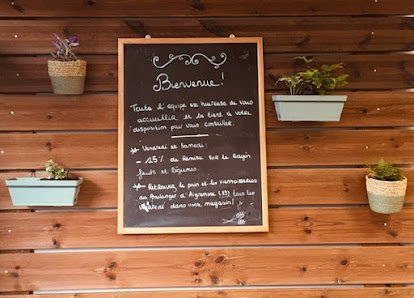 Bienvenue!
Toute l'équipe est heureuse de vous
accueillir et se tient à votre
disposition pour vous conseiller.
* Vendredi et Samedi:
-15% de Remise sur le Rayon
fruits et légumes
* Retrouvez le pain et les viennoiseries
du Boulanger d' (83) tous les
dans votre magasin!